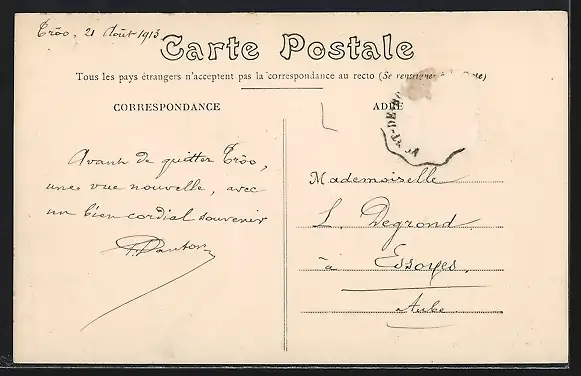 Trôo, 21 Août 1913
Carte Postale
Tous les pays étrangers n'acceptent pas la correspondance au recto (Se renseigner
CORRESPONDANCE
ADRE
Avant de quitter Trôo,
une vue nouvelle, avec
un bien cordial souvenir
Mademoiselle
L. Degrond
à Essoyes
Aube